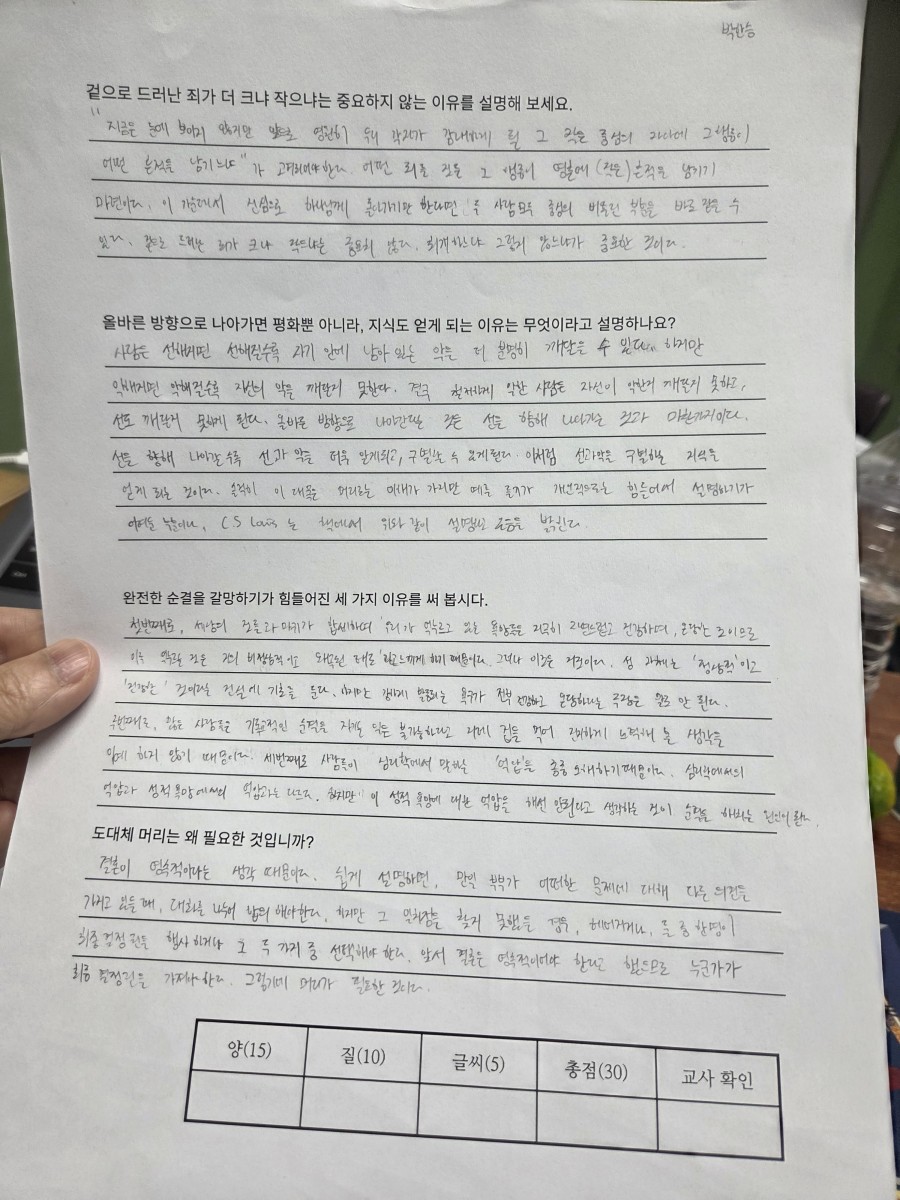 박한승
겉으로 드러난 죄가 더 크냐 작으냐는 중요하지 않는 이유를 설명해 보세요.
"지금은 눈에 보이지 않지만 앞으로 영원히 우리 각자가 감내하게 될 그 작은 중심의 자아에 그 행동이
어떤 흔적을 남기느냐"가 고려되어야 한다. 어떤 죄를 짓든 그 행동이 영혼에 (작은) 흔적을 남기기
마련이다. 이 가운데서 진심으로 하나님께 돌아가기만 한다면, 두 사람 모두 중심의 비틀린 부분을 바로 잡을 수
있다. 겉으로 드러난 죄가 크냐 작으냐는 중요치 않다. 회개하느냐 그렇지 않느냐가 중요한 것이다.
올바른 방향으로 나아가면 평화뿐 아니라, 지식도 얻게 되는 이유는 무엇이라고 설명하나요?
사람은 선해지면 선해질수록 자기 안에 남아 있는 악을 더 분명히 깨달을 수 있다. 하지만
악해지면 악해질수록 자신의 악을 깨닫지 못한다. 결국 철저하게 악한 사람은 자신이 악한지 깨닫지 못하고,
선도 깨닫지 못하게 된다. 올바른 방향으로 나아간다는 것은 선을 향해 나아가는 것과 마찬가지이다.
선을 향해 나아갈수록 선과 악을 더욱 알게되고, 구별할 수 있게 된다. 이처럼 선과 악을 구별하는 지식을
얻게 되는 것이다. 솔직히 이 대목은 머리로는 이해가 가지만 예를 들기가 개인적으로는 힘들어서 설명하기가
CS 는 책에서 위와 같이 설명
완전한 순결을 갈망하기가 힘들어진 세 가지 이유를 써 봅시다.
첫번째로, 세상의 것들과 마귀가 합세하여 우리가 억누르고 있는 욕망들은 지극히 자연스럽고 건강하며, 온당한 것이므로
이를 억누르는 것은 거의 비정상적이고 왜곡된 태도라고 느끼게 하기 때문이다. 그러나 이것은 거짓이다. 성 자체는 '정상적'이고
'건강한' 것이라는 진실에 기초를 둔다. 하지만 욕구가 전부 건강하고 온당하다는 안 된다.
두번째로, 많은 사람들은 기독교적인 순결을 지키는 것은 불가능하다고 지레 겁을 먹어 진지하게 노력해 볼 생각을
아예 하지 않기 때문이다. 세번째로 사람들이 심리학에서 말하는 '억압'을 종종 오해하기 때문이다. 심리학에서의
억압과 성적 욕망에서의 억압과는 다르다. 하지만 이 성적 욕망에 대한 억압을 해선 안된다고 생각하는 것이 순결을 원인이 된다.
도대체 머리는 왜 필요한 것입니까?
결혼이 영속적이라는 생각 때문이다. 쉽게 설명하면, 만일 부부가 어떠한 문제에 대해 다른 의견을
가지고 있을 때, 대화를 나눠 합의해야 한다. 하지만 그 일치점을 찾지 못했을 경우, 헤어지거나, 둘 중 한명이
최종 결정권을 행사하거나 두 가지 중 선택해야 한다. 앞서 결혼은 영속적이어야 한다고 했으므로 누군가가
최종 결정권을 가져야 한다. 그렇기에 머리가 필요한 것이다.
양(15) 질(10) 글씨(5) 총점(30) 교사 확인